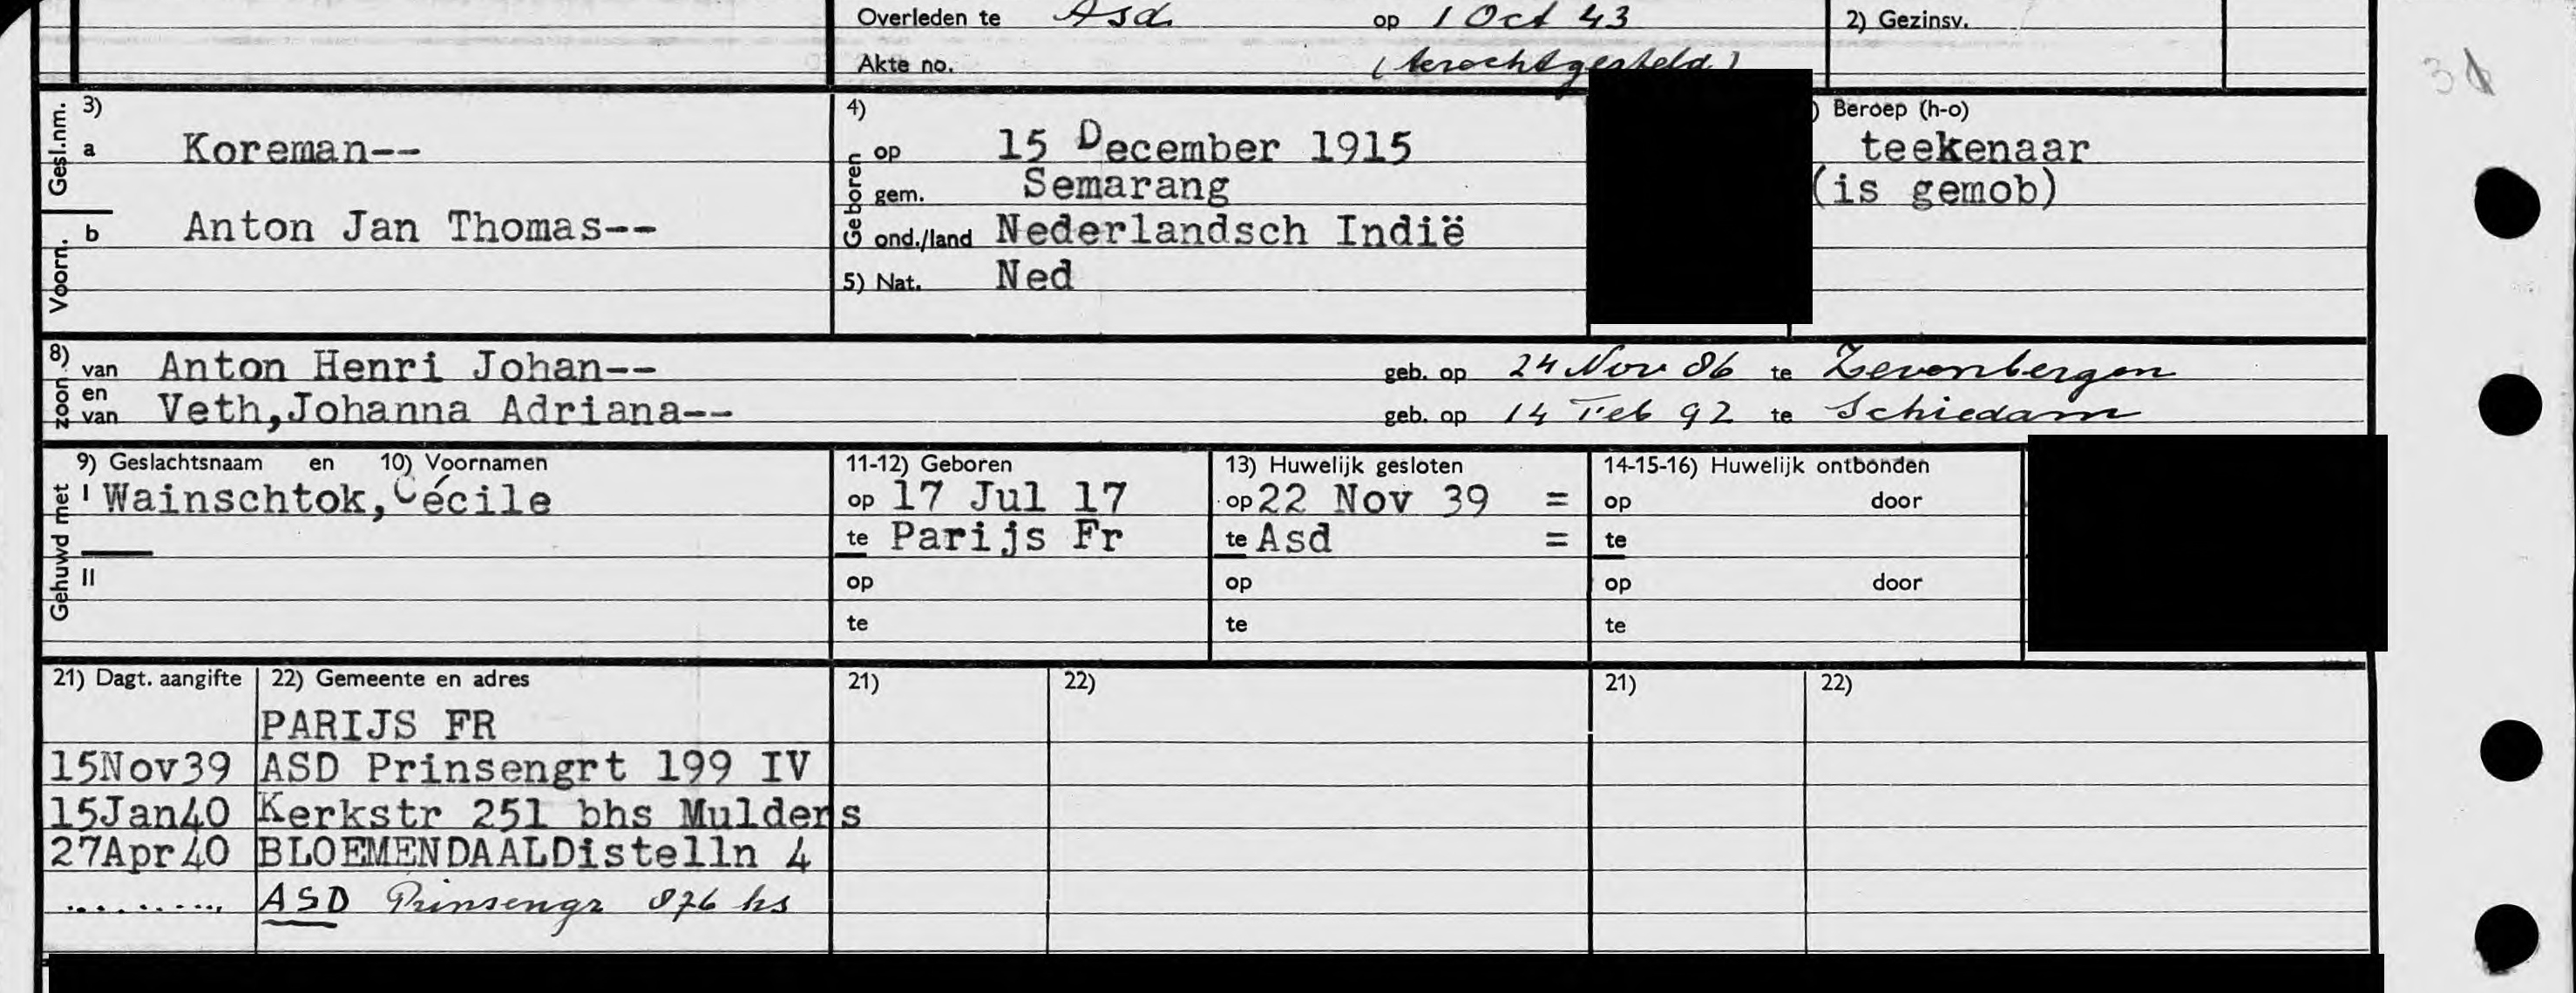 Overleden te Asd. op 1 Oct 43 2) Gezinsv.
Akte no. (terechtgesteld)
3) 4) ) Beroep (h-o)
Gesl.nm. a Koreman-- Geboren op 15 December 1915 teekenaar
gem. Semarang (is gemob)
Voorn. b Anton Jan Thomas-- ond./land Nederlandsch Indië
5) Nat. Ned
8) zoon van Anton Henri Johan-- geb. op 24 Nov 86 te Zevenbergen
en van Veth,Johanna Adriana-- geb. op 14 Feb 92 te Schiedam
Gehuwd met 9) Geslachtsnaam en 10) Voornamen 11-12) Geboren 13) Huwelijk gesloten 14-15-16) Huwelijk ontbonden
I Wainschtok,Cécile op 17 Jul 17 op 22 Nov 39 = op door
te Parijs Fr te Asd = te
II op op op door
te te te
21) Dagt. aangifte 22) Gemeente en adres 21) 22) 21) 22)
PARIJS FR
15Nov39 ASD Prinsengrt 199 IV
15Jan40 Kerkstr 251 bhs Mulders
27Apr40 BLOEMENDAALDistelln 4
.......... ASD Prinsengr 876 hs